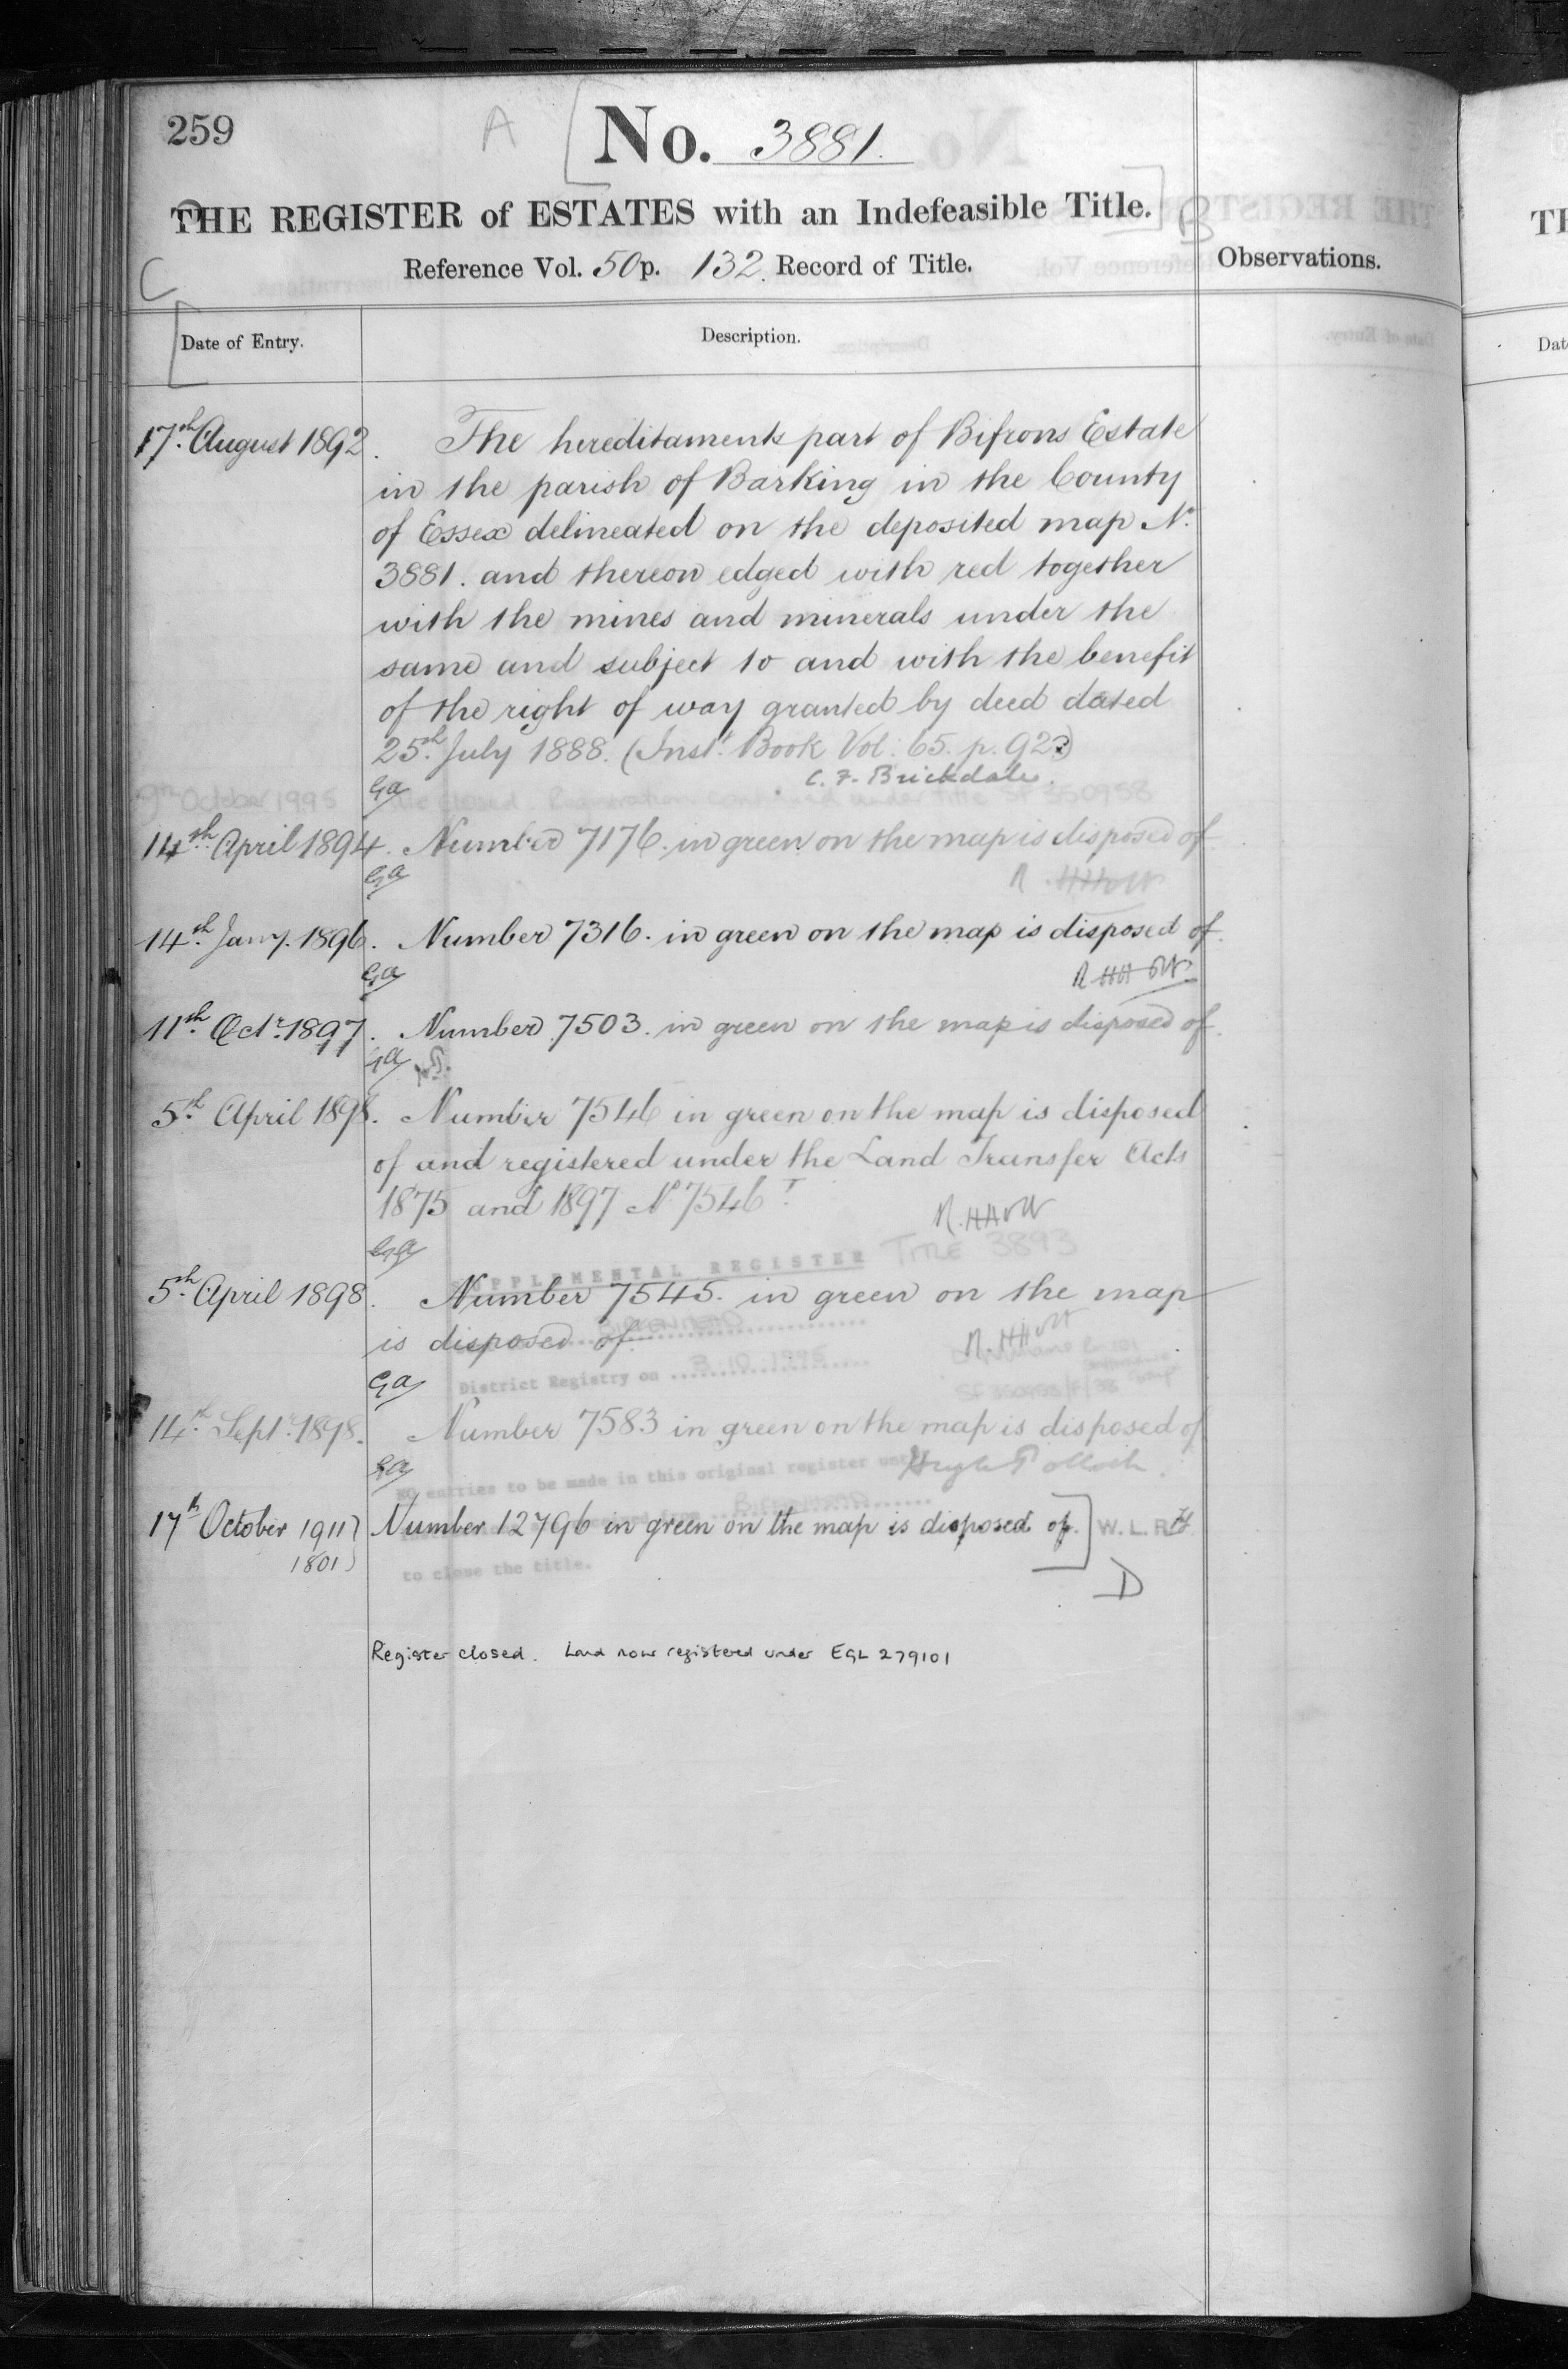 259
A
No. 3881.
THE REGISTER of ESTATES with an Indefeasible Title.
B
Reference Vol. 50 p. 132. Record of Title.
Observations.
C
Date of Entry.
Description.
17th August 1892. The hereditaments part of Bifrons Estate
in the parish of Barking in the County
of Essex delineated on the deposited map No.
3881. and thereon edged with red together
with the mines and minerals under the
same and subject to and with the benefit
of the right of way granted by deed dated
25th July 1888. (Inst. Book Vol: 65. p. 92
C. F. Brickdale.
Ga
9th October 1995 closed. Registration continued under title SF 350958
14th April 1894. Number 7176. in green on the map is disposed of
Ga
14th Jany. 1896. Number 7316. in green on the map is disposed of.
Ga
11th Octr. 1897. Number 7503. in green on the map is disposed of.
Ga
5th April 1898. Number 7546 in green on the map is disposed
of and registered under the Land Transfer Acts
1875 and 1897 No 7546
Ga
TITLE 3893
SUPPLEMENTAL REGISTER
5th April 1898. Number 7545. in green on the map
is disposed of.
BIRKENHEAD
District Registry on 3.10.1995
Ga
14th Septr. 1898. Number 7583 in green on the map is disposed of
Ga
Hugh Pollock.
NO entries to be made in this original register
17th October 1911 Number 12796 in green on the map is disposed of. W. L. R
1801
D
to close the title.
Register closed. Land now registered under EGL 279101
TH
Dat